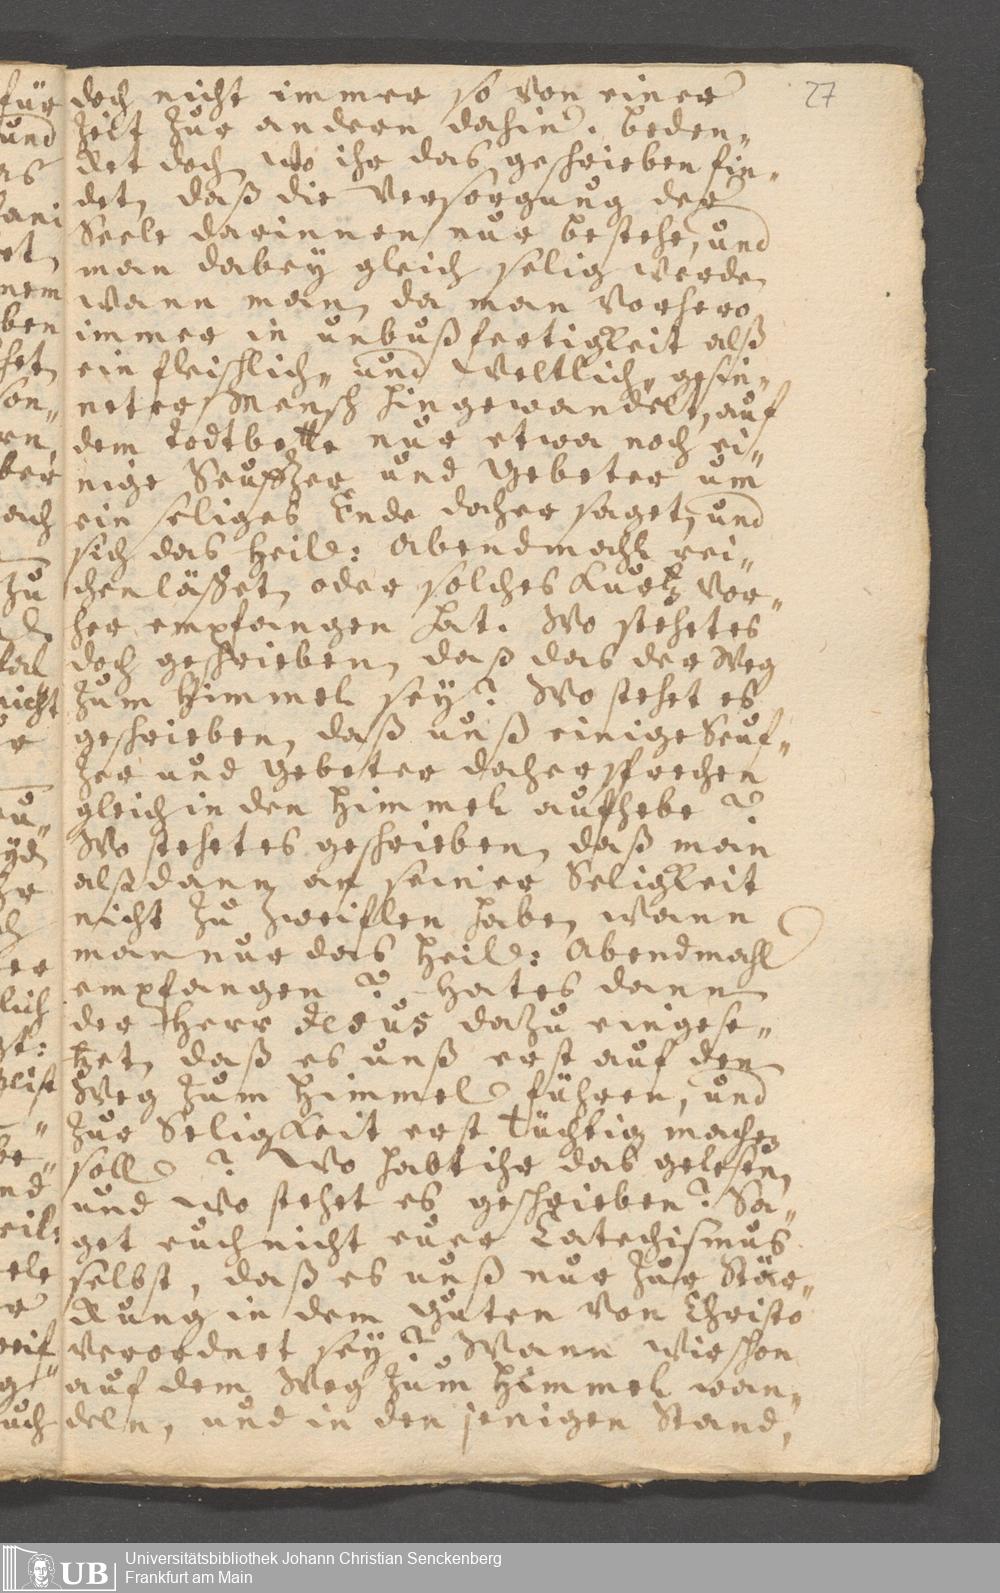 27
doch nicht immer so von einer
Zeit zur andern dahin. Beden„
ket doch, wo ihr das geschrieben fin„
det, daß die Versorgung der
Seele darinnen nur bestehe, und
man dabey gleich selig werde,
wann man, da man vorhero
immer in unbußfertigkeit alß
ein fleischlich„ und Weltlich„ gesin„
neter Mensch hingewandelt, auf
dem Todtbette nur etwa noch ei„
nige Seuffzer und Gebeter um
ein seliges Ende daher saget, und
sich das Heil: Abendmahl rei„
chen läßet, oder solches kurtz vor„
her empfangen hat. Wo stehet es
doch geschrieben, daß das der Weg
zum Himmel seÿ? Wo stehet es
geschrieben, daß unß einige Seuf„
zer und Gebeter daher sprechen
gleich in den Himmel aufhebe?
Wo stehet es geschrieben, daß man
alß dann an seiner Seligkeit
nicht zu zweiflen habe, wann
man nur das Heil: Abendmahl
empfangen? Hat es dann
der Herr Jesus dazu eingese„
tzet, daß es unß erst auf den
Weg zum Himmel führen, und
zur Seligkeit erst tüchtig machen
soll? Wo habt ihr das gelesen,
und wo stehet es geschrieben? Sa„
get euch nicht euer Catechismus
selbst, daß es unß nur zur Stär„
kung in dem Guten von Christo
verordnet seÿ? Wann wir schon
auf dem Weg zum Himmel wan„
deln, und in den jenigen Stand,
UB
Universitätsbibliothek Johann Christian Senckenberg
Frankfurt am Main